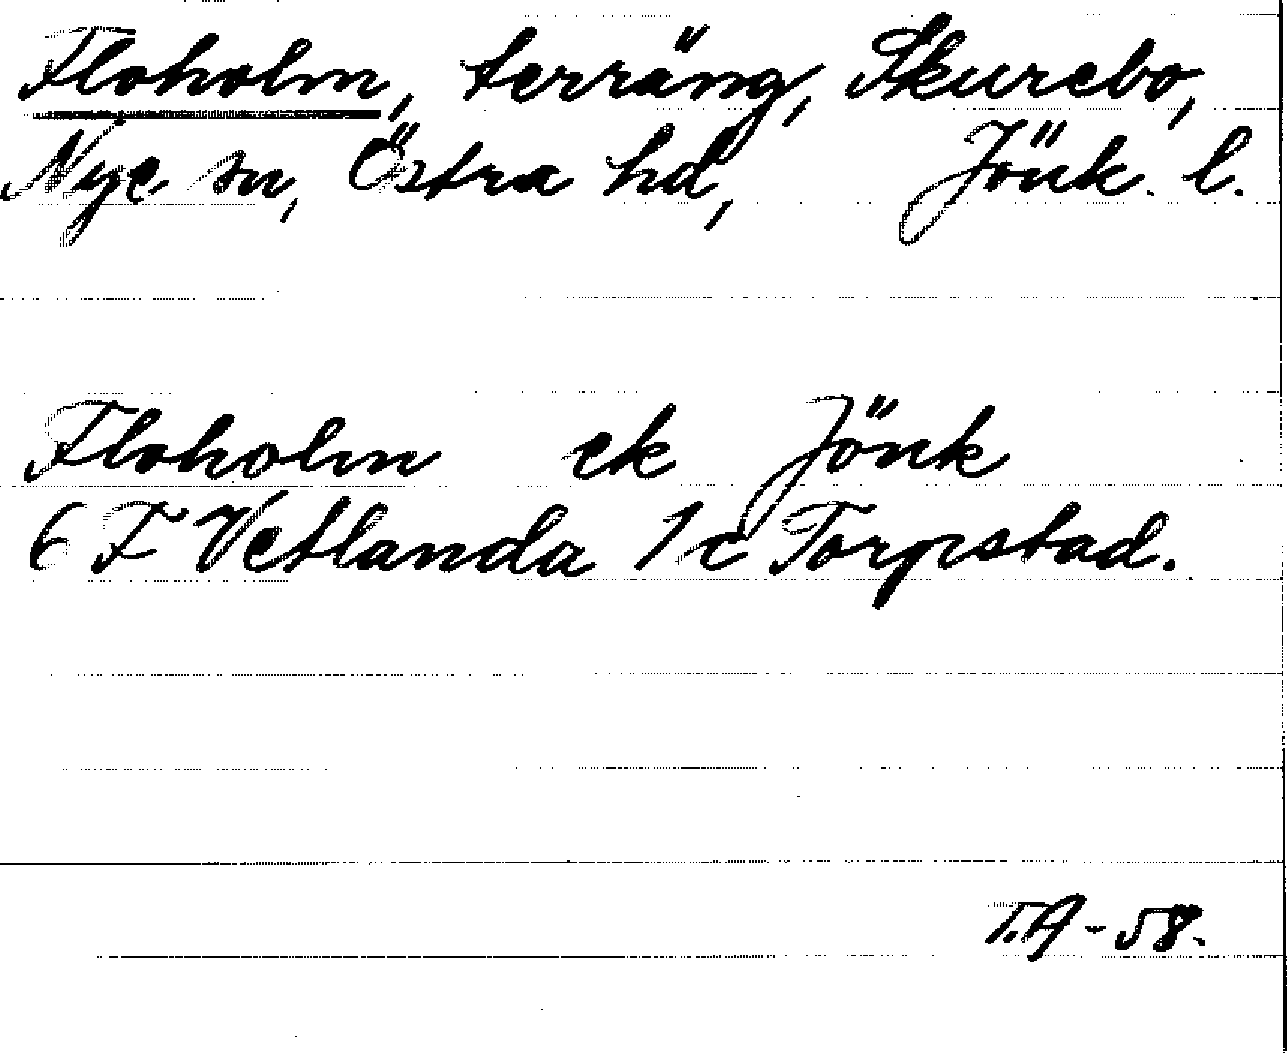 Floholm, terräng, Skurebo,
Nye sn, Östra hd, Jönk. l.
Floholm ek Jönk
6 F Vetlanda 1 c Torpstad.
T.A-58.